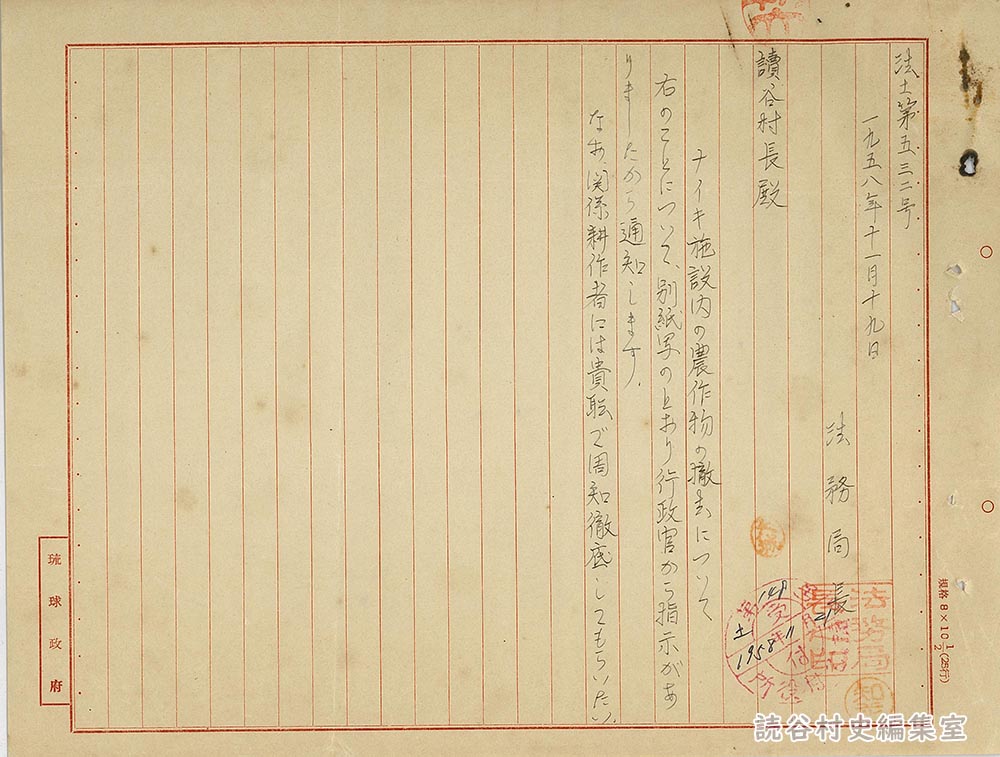 法土第五三二号
一九五八年十一月十九日
法務局長
讀谷村長殿
ナイキ施設内の農作物の撤去について
右のことについて、別紙写のとおり行政官から指示があ
りましたから通知します。
なお、関係耕作者には貴職で周知徹底してもらいたい。
琉球政府
規格8×10 1/2(25行)
受付
1958年11月21
土
149
法務局
読谷村史編集室